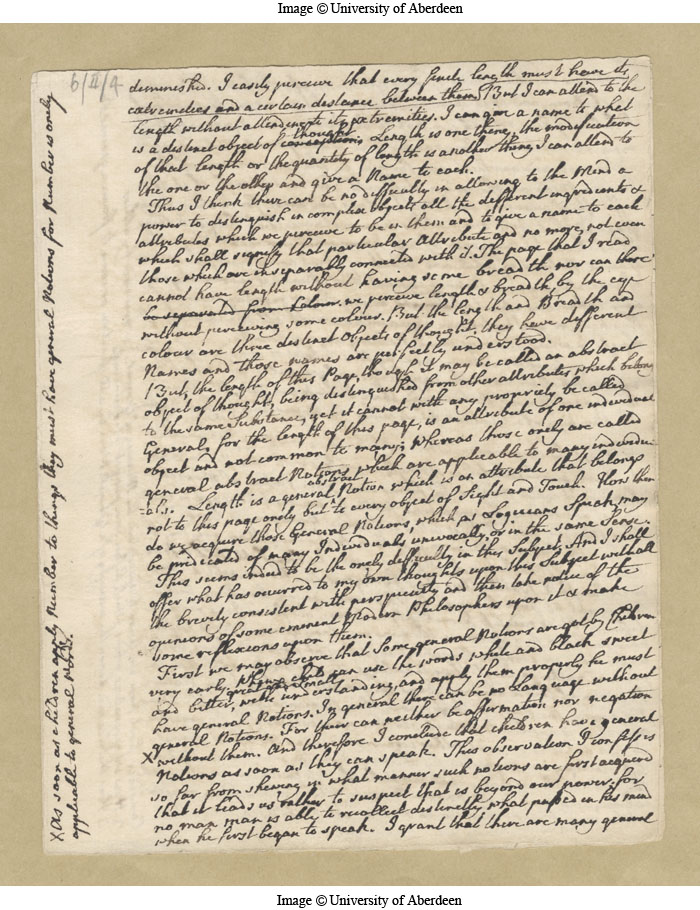 Image © University of Aberdeen
6/II/4
diminished. I easily perceive that every finite length must have its
extremities and a certain distance between them. But I can attend to the
length without attending to its extremities. I can give a name to what
is a distinct object of conception thought. Length is one thing, the modification
of that length or the quantity of length is another thing. I can attend to
the one or the other and give a Name to each.
Thus I think there can be no difficulty in allowing to the Mind a
power to distinguish in complex objects all the different ingredients &
attributes which we perceive to be in them and to give a name to each
which shall signify that particular Attribute and no more, not even
those which are inseparably connected with it. The page that I read
cannot have length without having some breadth nor can these
be separated from Colour. we perceive length & breadth by the eye
without perceiving some colour. But the length and Breadth and
colour are three distinct objects of thought, they have different
Names and those names are perfectly understood.
But, the length of this Page, though it may be called an abstract
object of thought, being distinguished from other attributes which belong
to the same Substance, yet it cannot with any propriety be called
General, for the length of this page, is an attribute of one individual
object and not common to many; whereas those onely are called
general abstract Notions which are applicable to many individu
=als. Length is a general abstract Notion which is an attribute that belongs
not to this page onely but to every object of Sight and Touch. How then
do we acquire those General Notions, which as Logicians Speak, may
be predicated of many Individuals univocally, or in the same Sense.
This seems indeed to be the onely difficulty in this Subject. And I shall
offer what has occurred to my own thoughts upon this Subject with all
the brevity consistent with perspicuity and then take notice of the
opinions of some eminent Modern Philosophers upon it & make
some reflexions upon them.
First we may observe that Some general Notions are got by Children
very early, when a child can use the words white and black sweet
and bitter, great and small with understanding, and apply them properly he must
have general Notions. In general there can be no Language without
general Notions. For there can neither be affirmation nor negation
X without them. And therefore I conclude that children have general
Notions as soon as they can speak. This observation I confess is
so far from shewing in what manner such notions are first acquired
that it leads us rather to suspect that is beyond our power. for
no man man is able to recollect distinctly what passed in his mind
when he first began to speak. I grant that there are many general
X As soon as children apply Number to things they must have general Notions for Number is onely
applicable to general Notions.
Image © University of Aberdeen